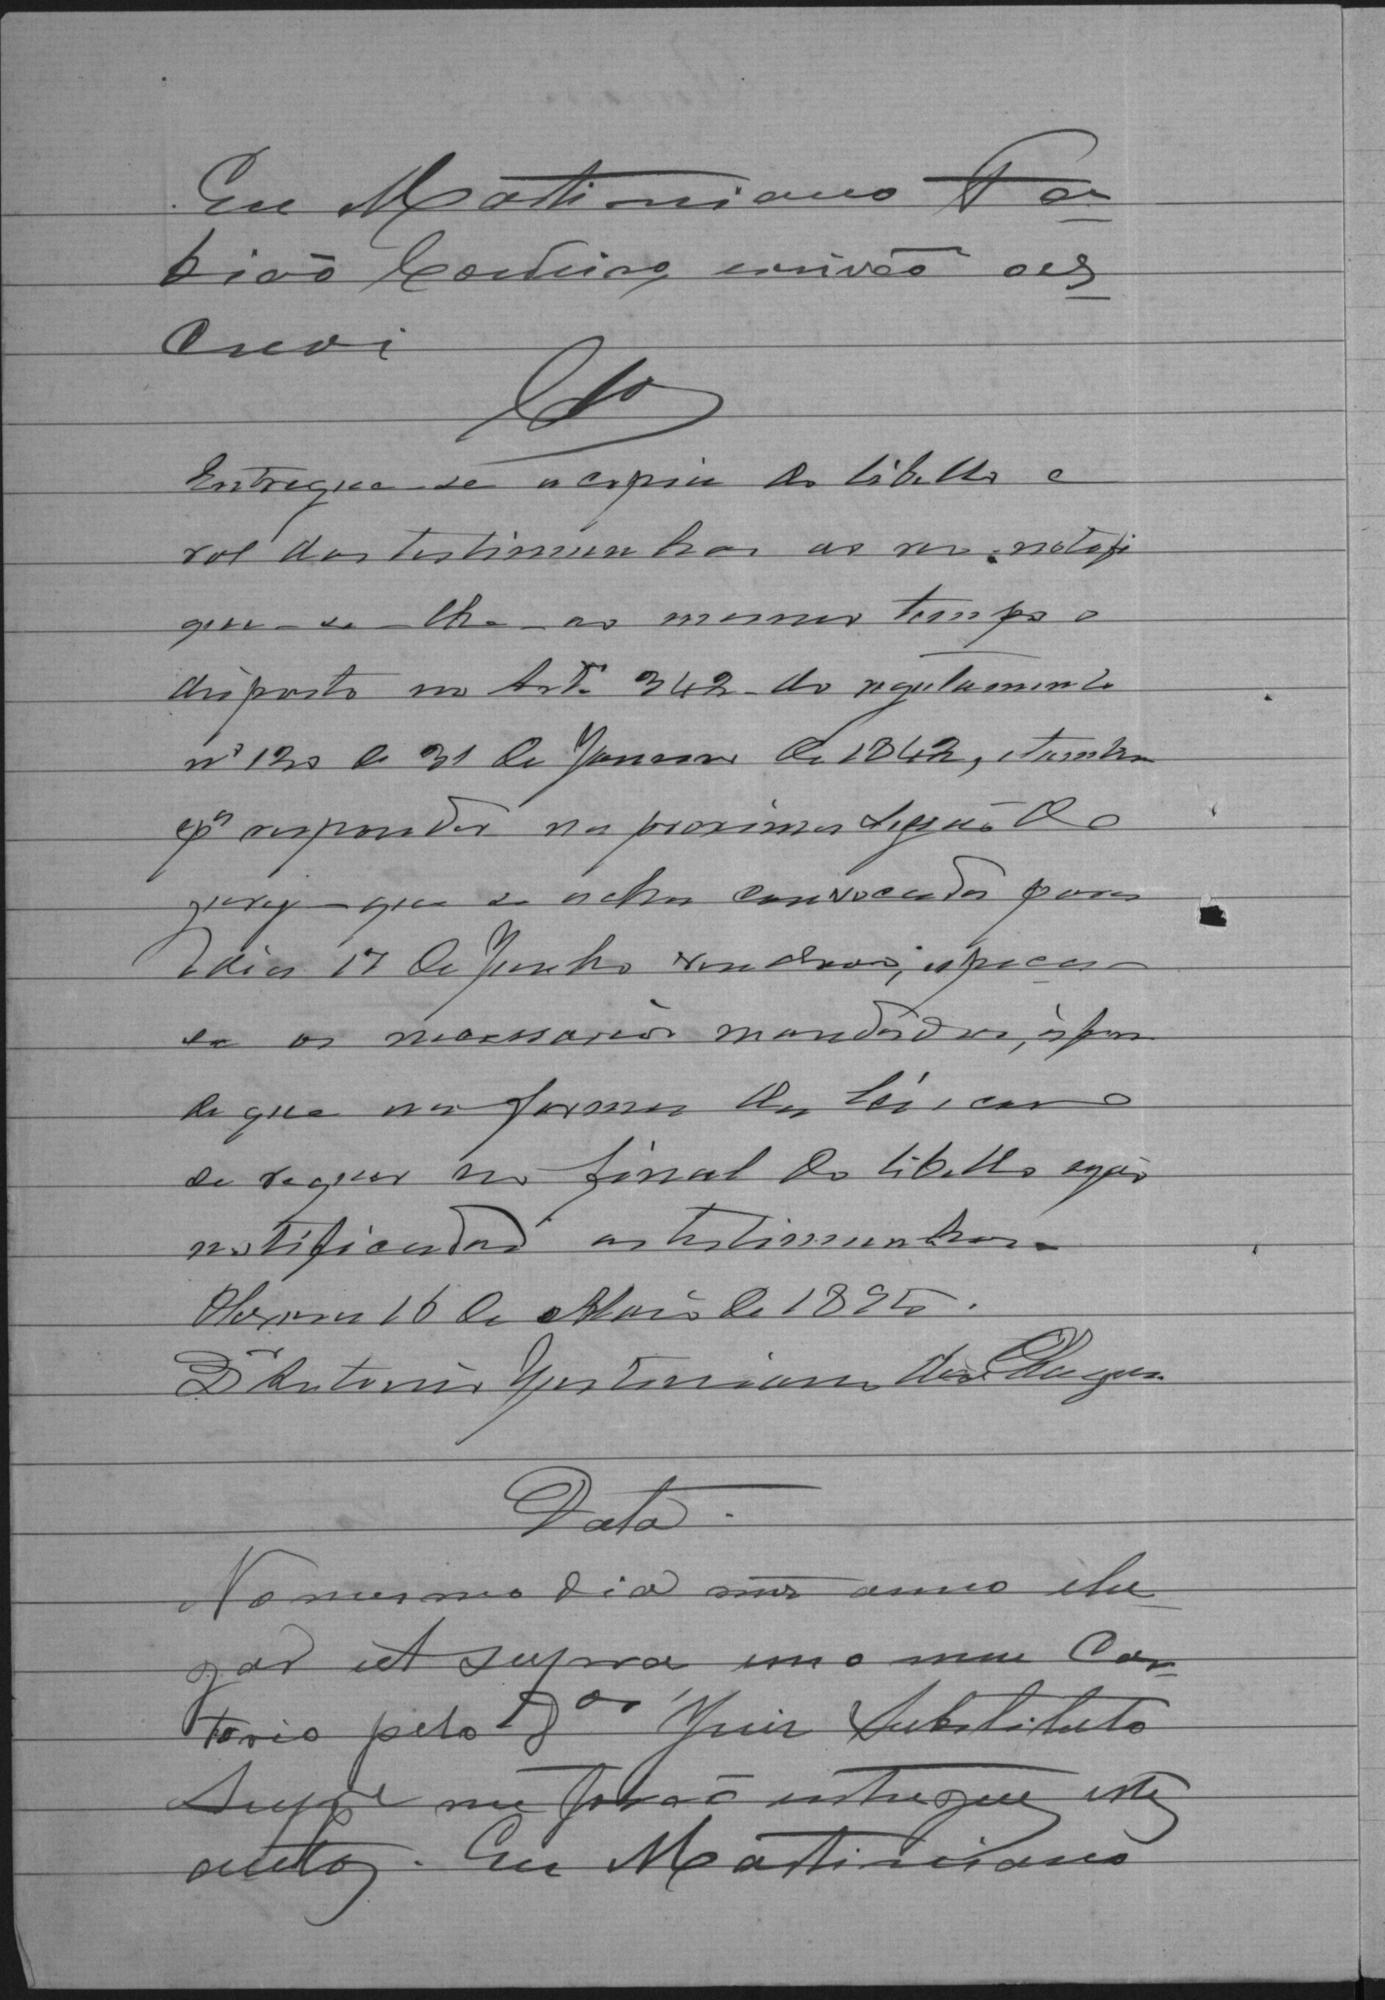 Eu Martiniano Fa-
bião Cordeiro, escrivão o es-
crevi
Clo
Entregue-se a copia do libello e
rol das testimunhas ao reo, notifi
que-se-lhe ao mesmo tempo o
disposto no Art. 342 do regulamento
nº 120 de 31 de Janeiro de 1842, e tambem
pª responder na proxima sessão do
jury que se acha convocada para
dia 17 de Junho vindouro; espeça-
se os necessarios mandados, afim
de que na forma da lei e como
se requer no final do libello sejão
notificadas as testimunhas.
16 de Maio de 1895.
Dr Antonio Justiniano das Chagas.
Data.
No mesmo dia mez anno e lu-
gar ut supra em o meu Car-
torio pelo Dor Juiz Substituto
Suppe me forão entregues estes
autos. Eu Martiniano